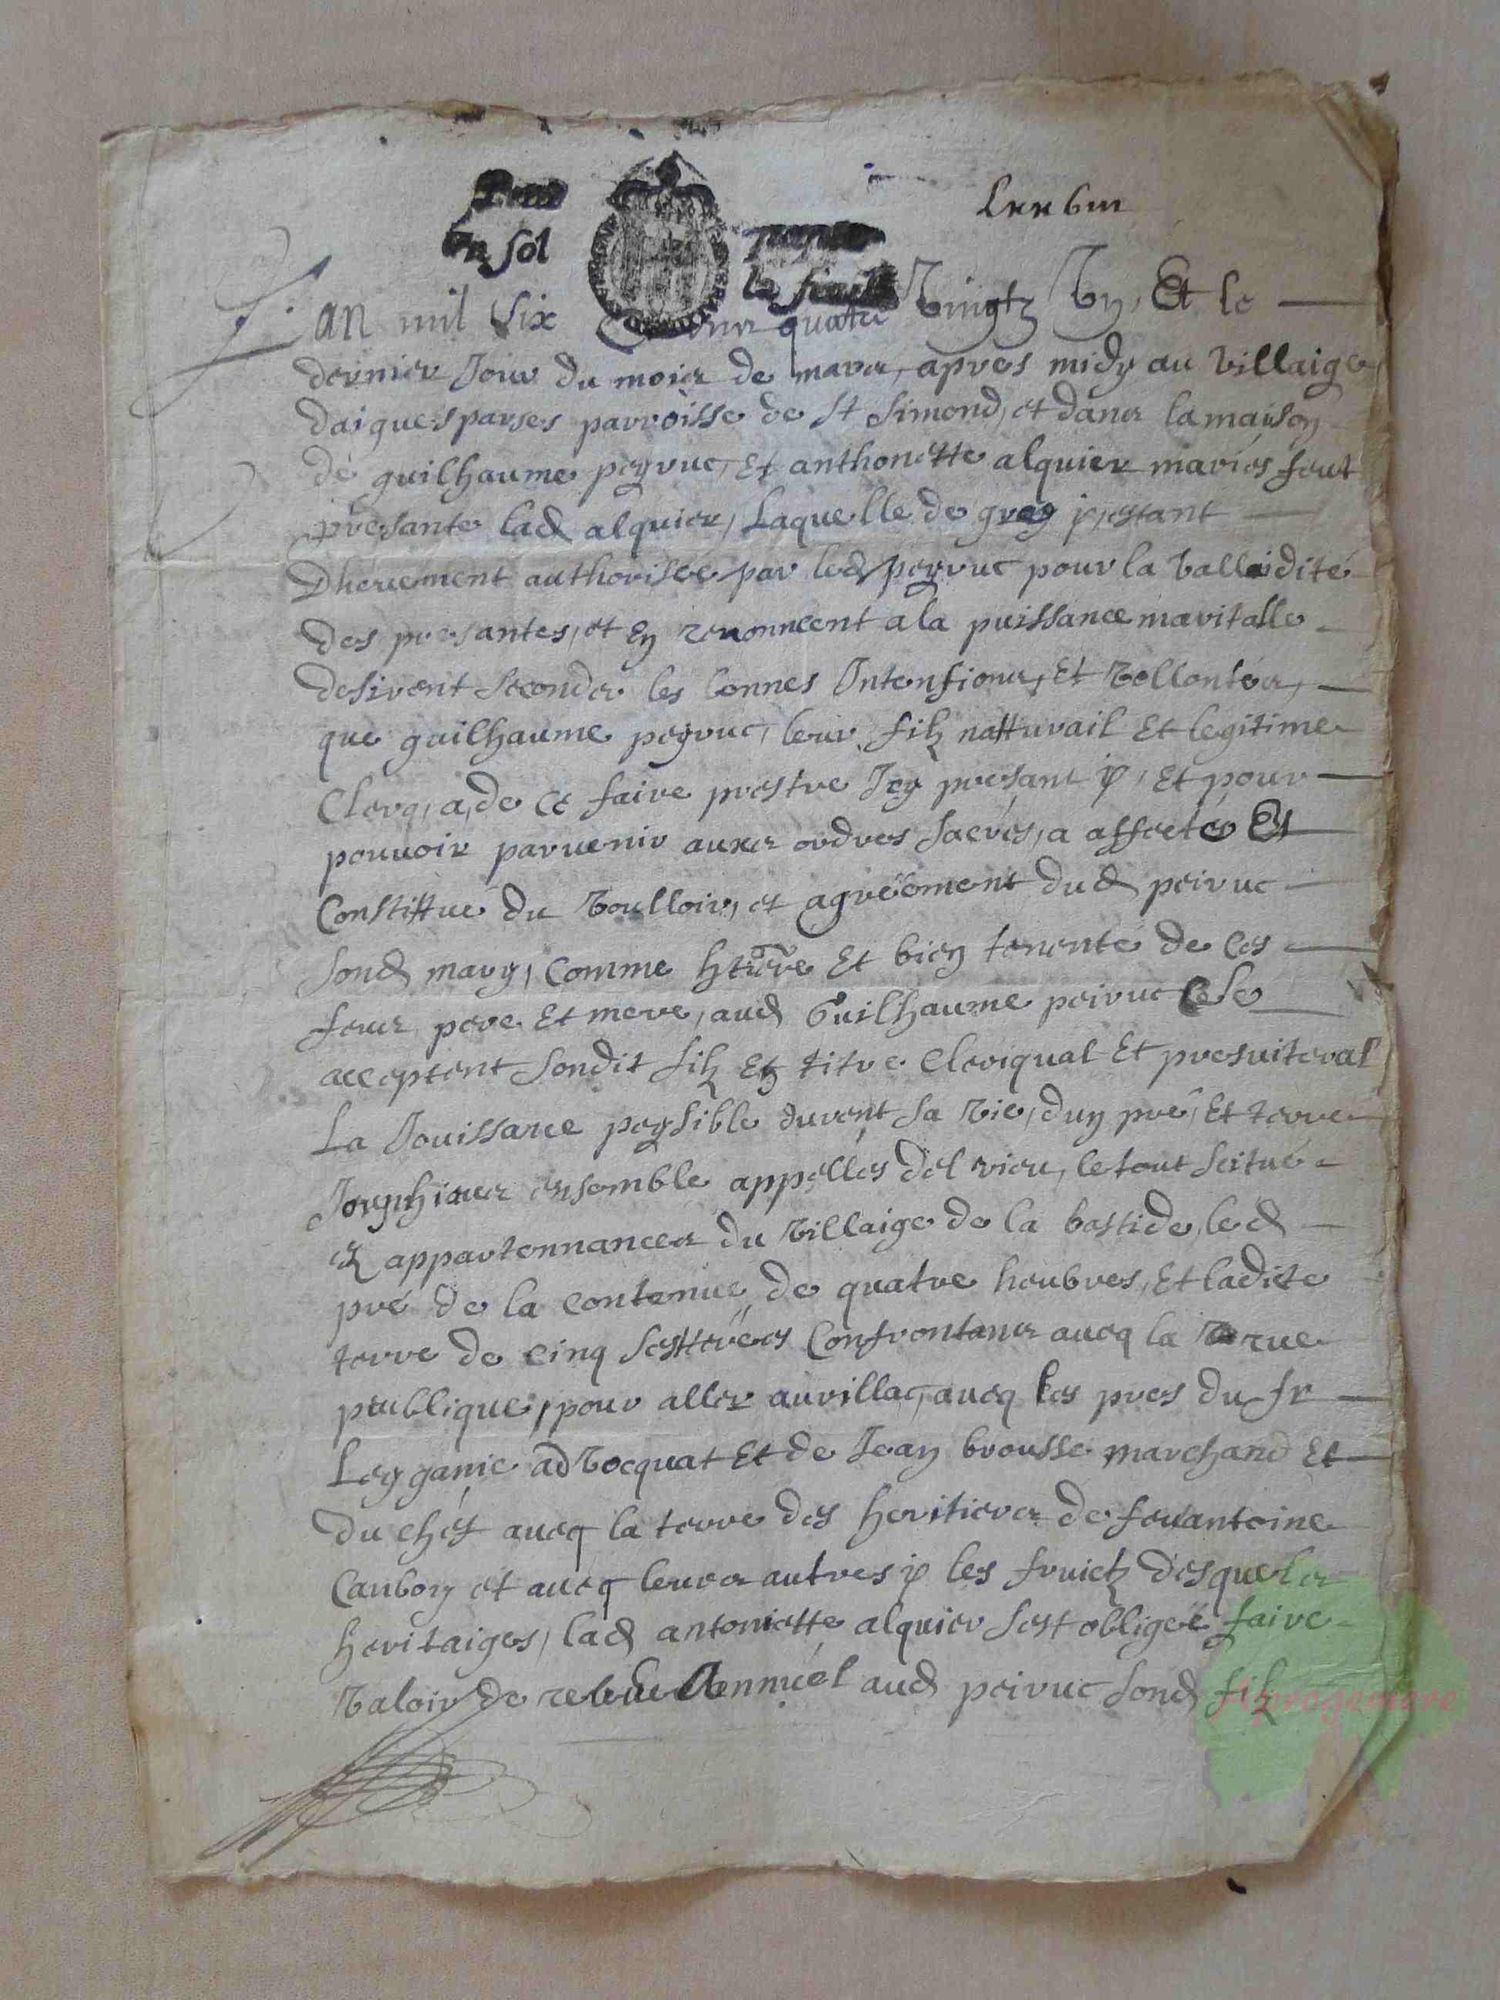 un sol
la feuille
Lan mil six quatre vingtz un, Et le
dernier Jour du mois de mars, apres midy au villaige
daiguesparses parroisse de st Simond, et dans la maison
de guilhaume peyruc, Et anthonette alquier mariés feut
presante lad alquier, Laquelle de grey estant
Dheuement authorisée par led peyruc pour la vallaidité
des presantes, et En renonncent a la puissance maritalle
desirent seconder les bonnes Intentions, Et vollontés,
que guilhaume peyruc, leur filz natturail Et legitime
Clerq, a, de ce faire prestre Icy presant Et pour
pouvoir parvenir auxs ordres sacrés, a affecté Et
Constittué du voulloir, et agréement dud peiruc
sond mary, Comme htiere Et bien tenente de ces
feus pere Et mere, aud Guilhaume peiruc
acceptent sondit filz En titre Cleriqual Et presviteral
La Jouissance peysible durent sa vie, dun pré, Et terre
Joinghixs ensemble appellés del rieu, le tout scitué
appartennances du villaige de la bastide, led
pré de la contenue de quatre heubres, Et ladite
terre de cinq sestterées Confrontans aveq la rue
publique, pour aller aurillac, aveq les pres du sr
Leyganie advocquat Et de Jean brousse marchand Et
du chef aveq la terre des heritiers de feu antoine
Caubon et aveq leurs autres les fruictz desquels
heritaiges, lad antoniette alquier sest obligeé faire
valoir de revenu Annuel aud peiruc sond filz
progenere